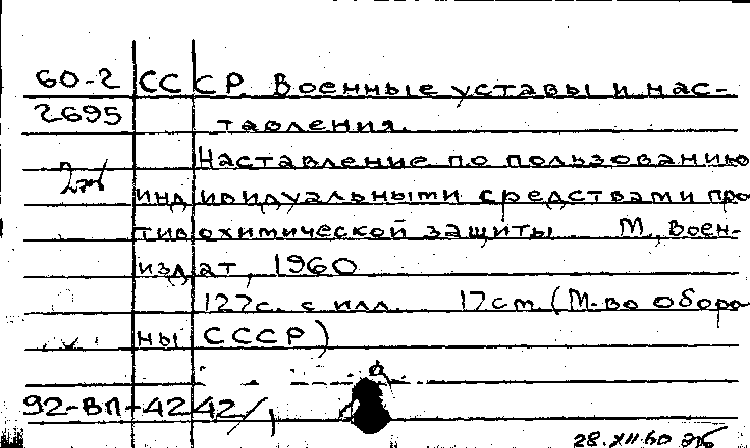 60-2 СССР Военные уставы и нас-
2695 тавления.
Наставление по пользованию
индивидуальными средствами про
тивохимической защиты М., Воен-
издат, 1960
127с. с илл. 17см (М-во оборо
ны СССР)
92-ВП-4242/1
28.XII.60